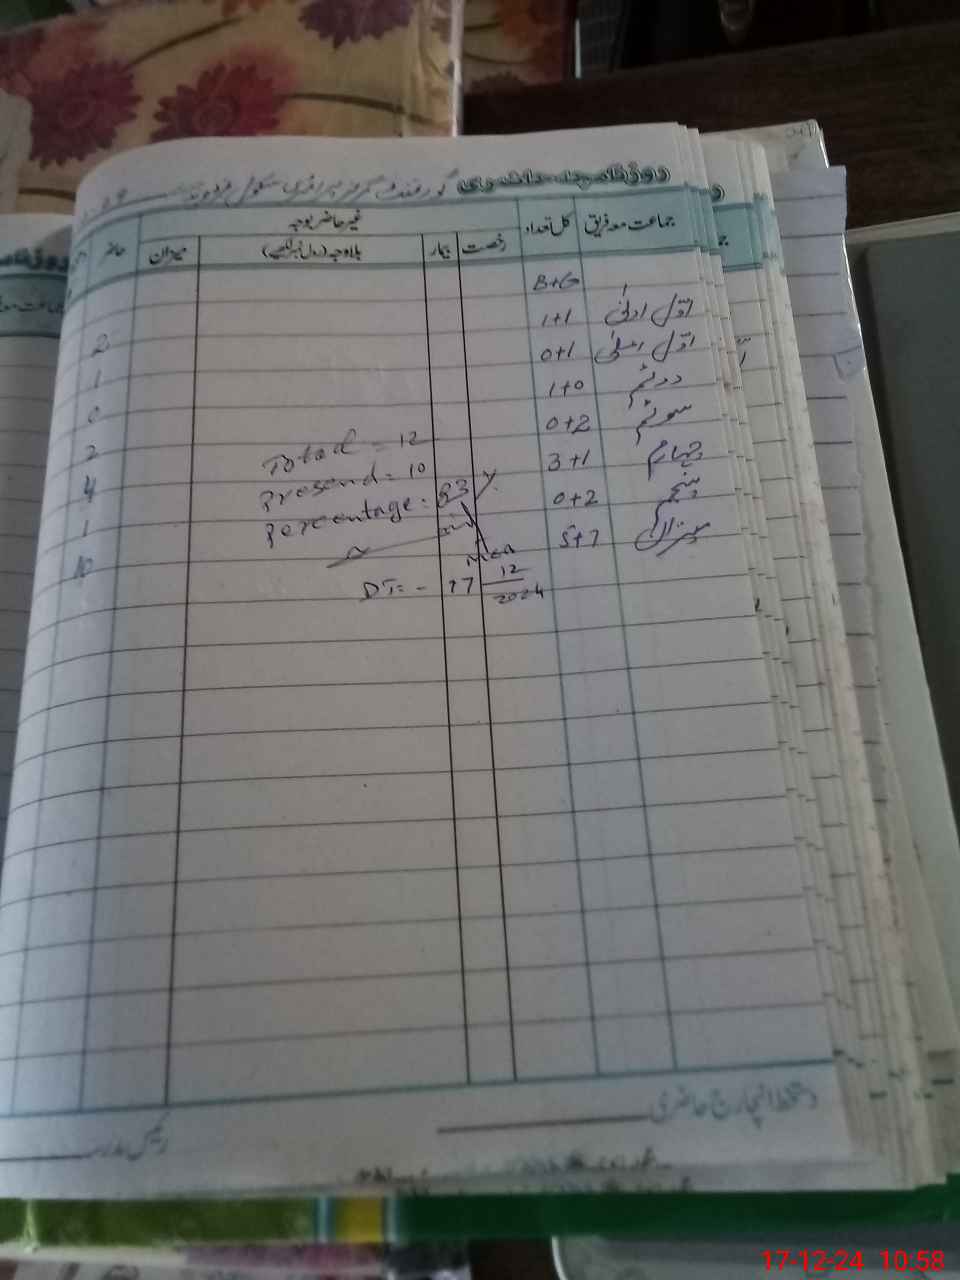 روزنامچہ حاضری گورنمنٹ گرلز پرائمری سکول
جماعت معہ فریق کل تعداد غیر حاضر بوجہ حاضر
رخصت بیمار بلاوجہ (رول نمبر لکھیے) میزان
B+G
اول ادنیٰ 1+1 2
اول اعلیٰ 0+1 1
دوئم 1+0 0
سوئم 0+2 2
چہارم 3+1 4
پنجم 0+2 1
میزان 5+7 10
Total = 12
Presend = 10
Percentage: 83 %
MEA
DT: - 17 12 2024
دستخط انچارج حاضری
رئیس مدرسہ
17-12-24 10:58